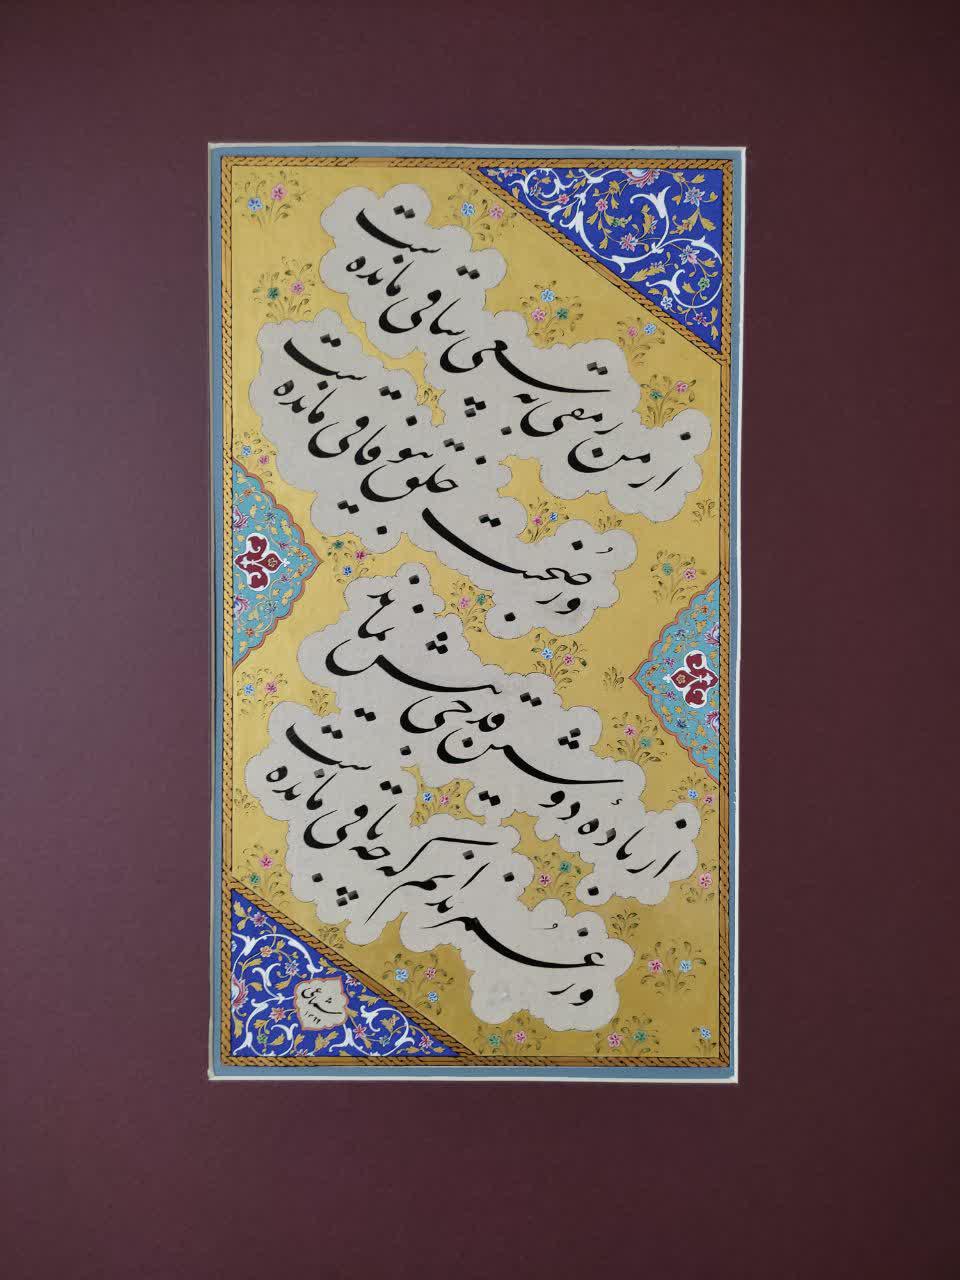 از من رمقی به سعی ساقی مانده ست
وز صحبت خلق بیوفاقی مانده ست
از بادهٔ دوشین قدحی بیش نماند
وز عُمر ندانم که چه باقی مانده ست